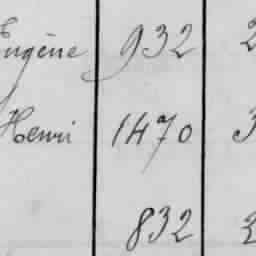 Eugène 932 2
Henri 1470 3
832 3